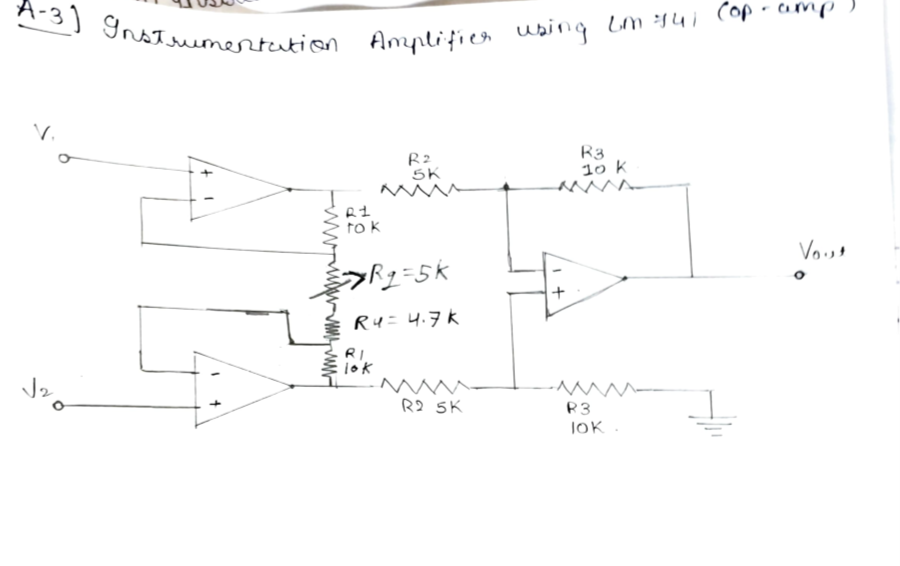 A-3] Instrumentation Amplifier using LM741 (op-amp)
V1
R2
5K
R3
10 K
R1
10K
Rg=5K
R4= 4.7K
R1
10K
Vout
V2
R2 5K
R3
10K.
+
-
-
+
-
+